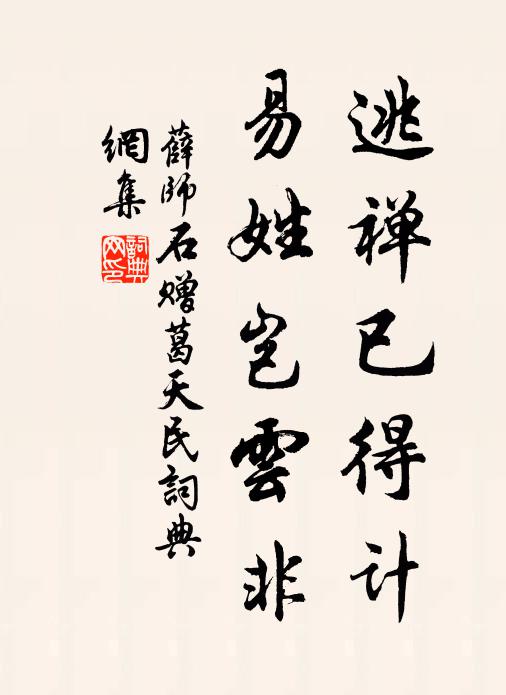 逃禅已得计
易姓岂雲非
薛師石贈葛天民詞典
網集
詞典
网印